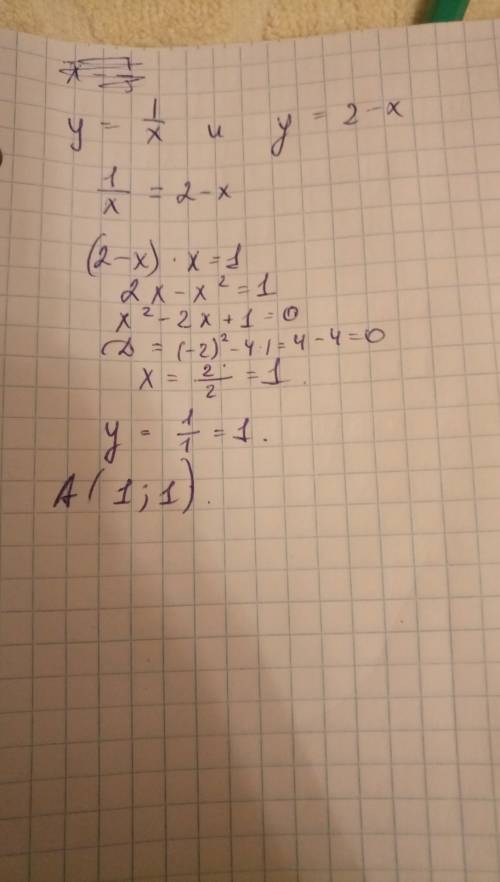 y = 1/x и y = 2-x
1/x = 2-x
(2-x) · x = 1
2x - x² = 1
x² - 2x + 1 = 0
D = (-2)² - 4·1 = 4 - 4 = 0
x = 2/2 = 1.
y = 1/1 = 1.
A(1; 1).